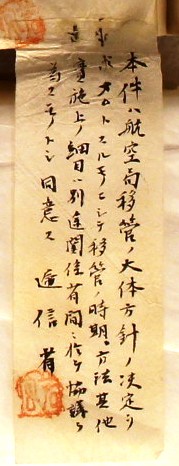 本件ハ航空局移管ノ大体方針ノ決定ヲ
求メムトスルモノニシテ移管ノ時期、方法其他
実施上ノ細目ハ別途関係省間ニ於テ協議ヲ
為スモノトシ同意ス 逓信省